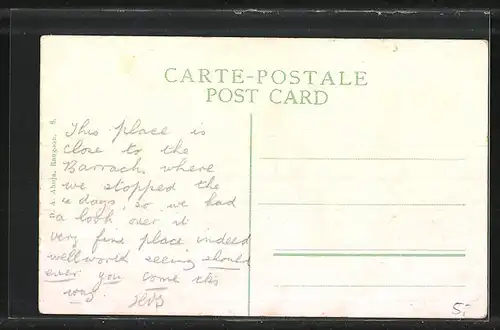 CARTE-POSTALE
POST CARD
This place is
close to the
Barrack where
we stopped the
4 days, so we had
a look over it
very fine place indeed
well world seeing should
ever you come this
way.
A. Ahuja, Rangoon. 8.
5.-